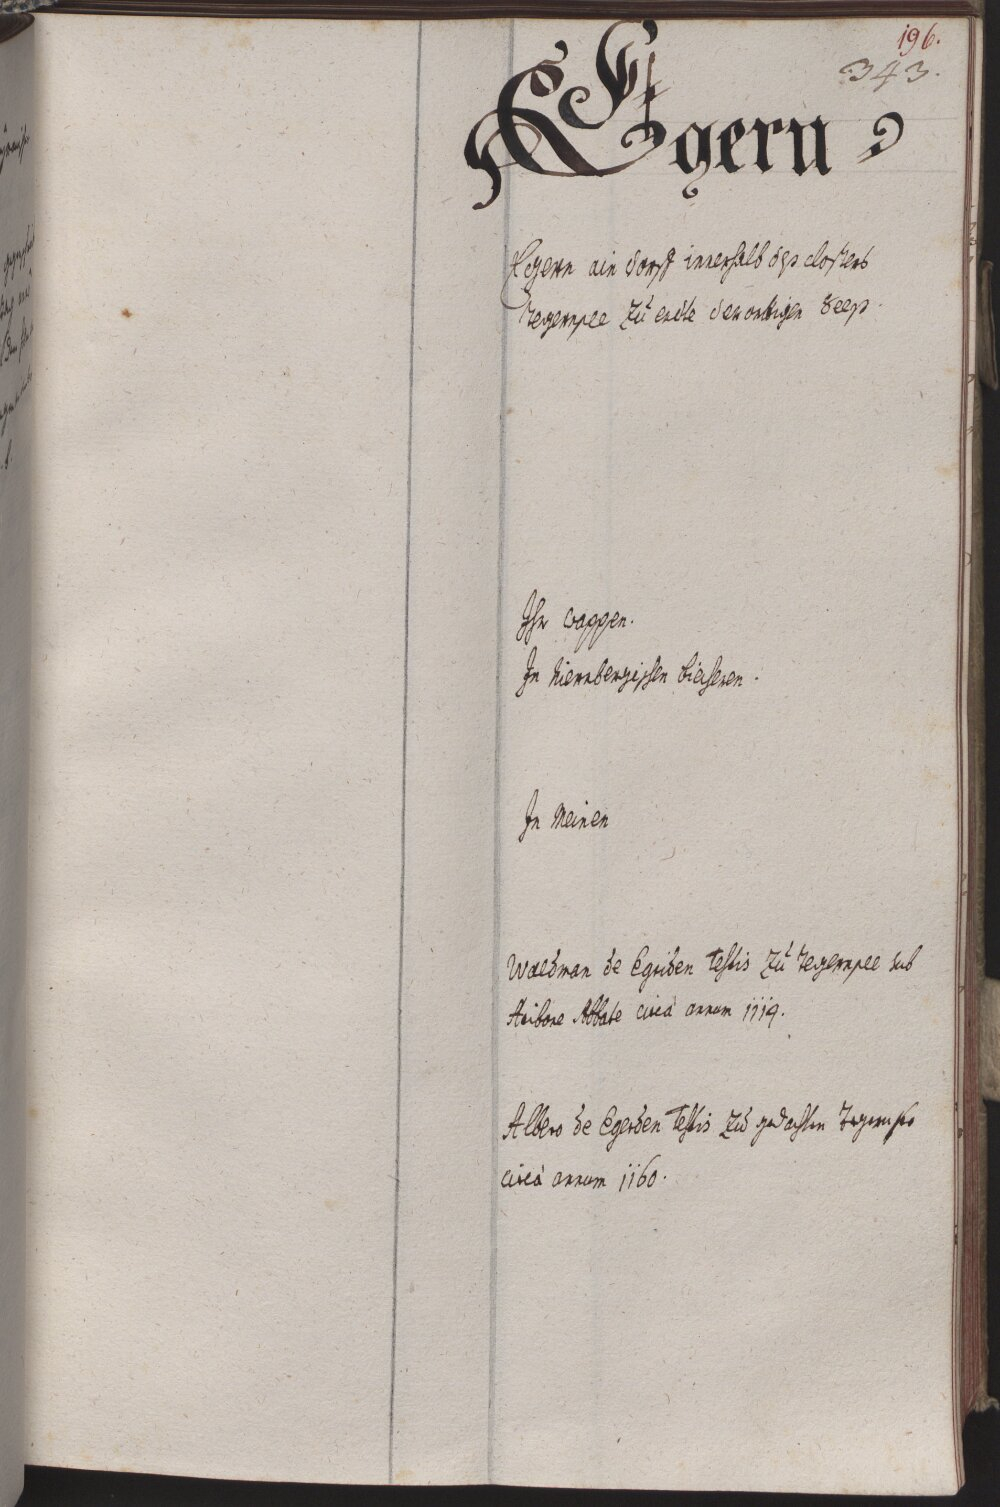 196.
343.
Egern
Egern ain dorff innerhalb dess closters
Tegernsee zu endte des sees
Ihr wappen.
In Niernbergischen biecheren.
In meinen
Waldman de Egriden testis zu Tegernsee sub
Aribone Abbate circa annum 1119.
Albero de Egerden testis zu gedachten Tegernsee
circa annum 1160.